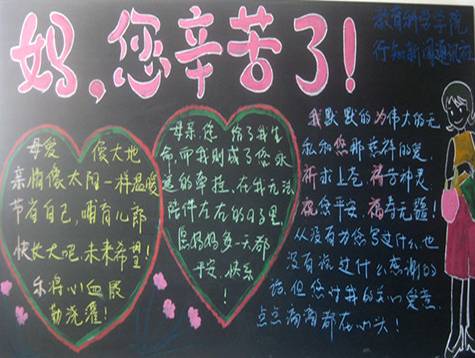 妈,您辛苦了!
教育科学学院
行知新闻通讯社
母爱 像大地
亲情像太阳一样温暖
节省自己,哺育儿郎
快长大吧,未来希望!
乐将心血
勤浇灌!
母亲,您给了我生
命,而我则成了您永
远的牵挂,在我无法
陪伴左右的日子里,
愿妈妈每一天都
平安、快乐
!
我默默的为伟大的无
私和您那慈祥的爱,
祈求上苍,祷告神灵,
祝您平安,福寿无疆!
从没有为您写过什么,也
没有说过什么感谢的
话,但您对我的关心爱意
点点滴滴都在心头!